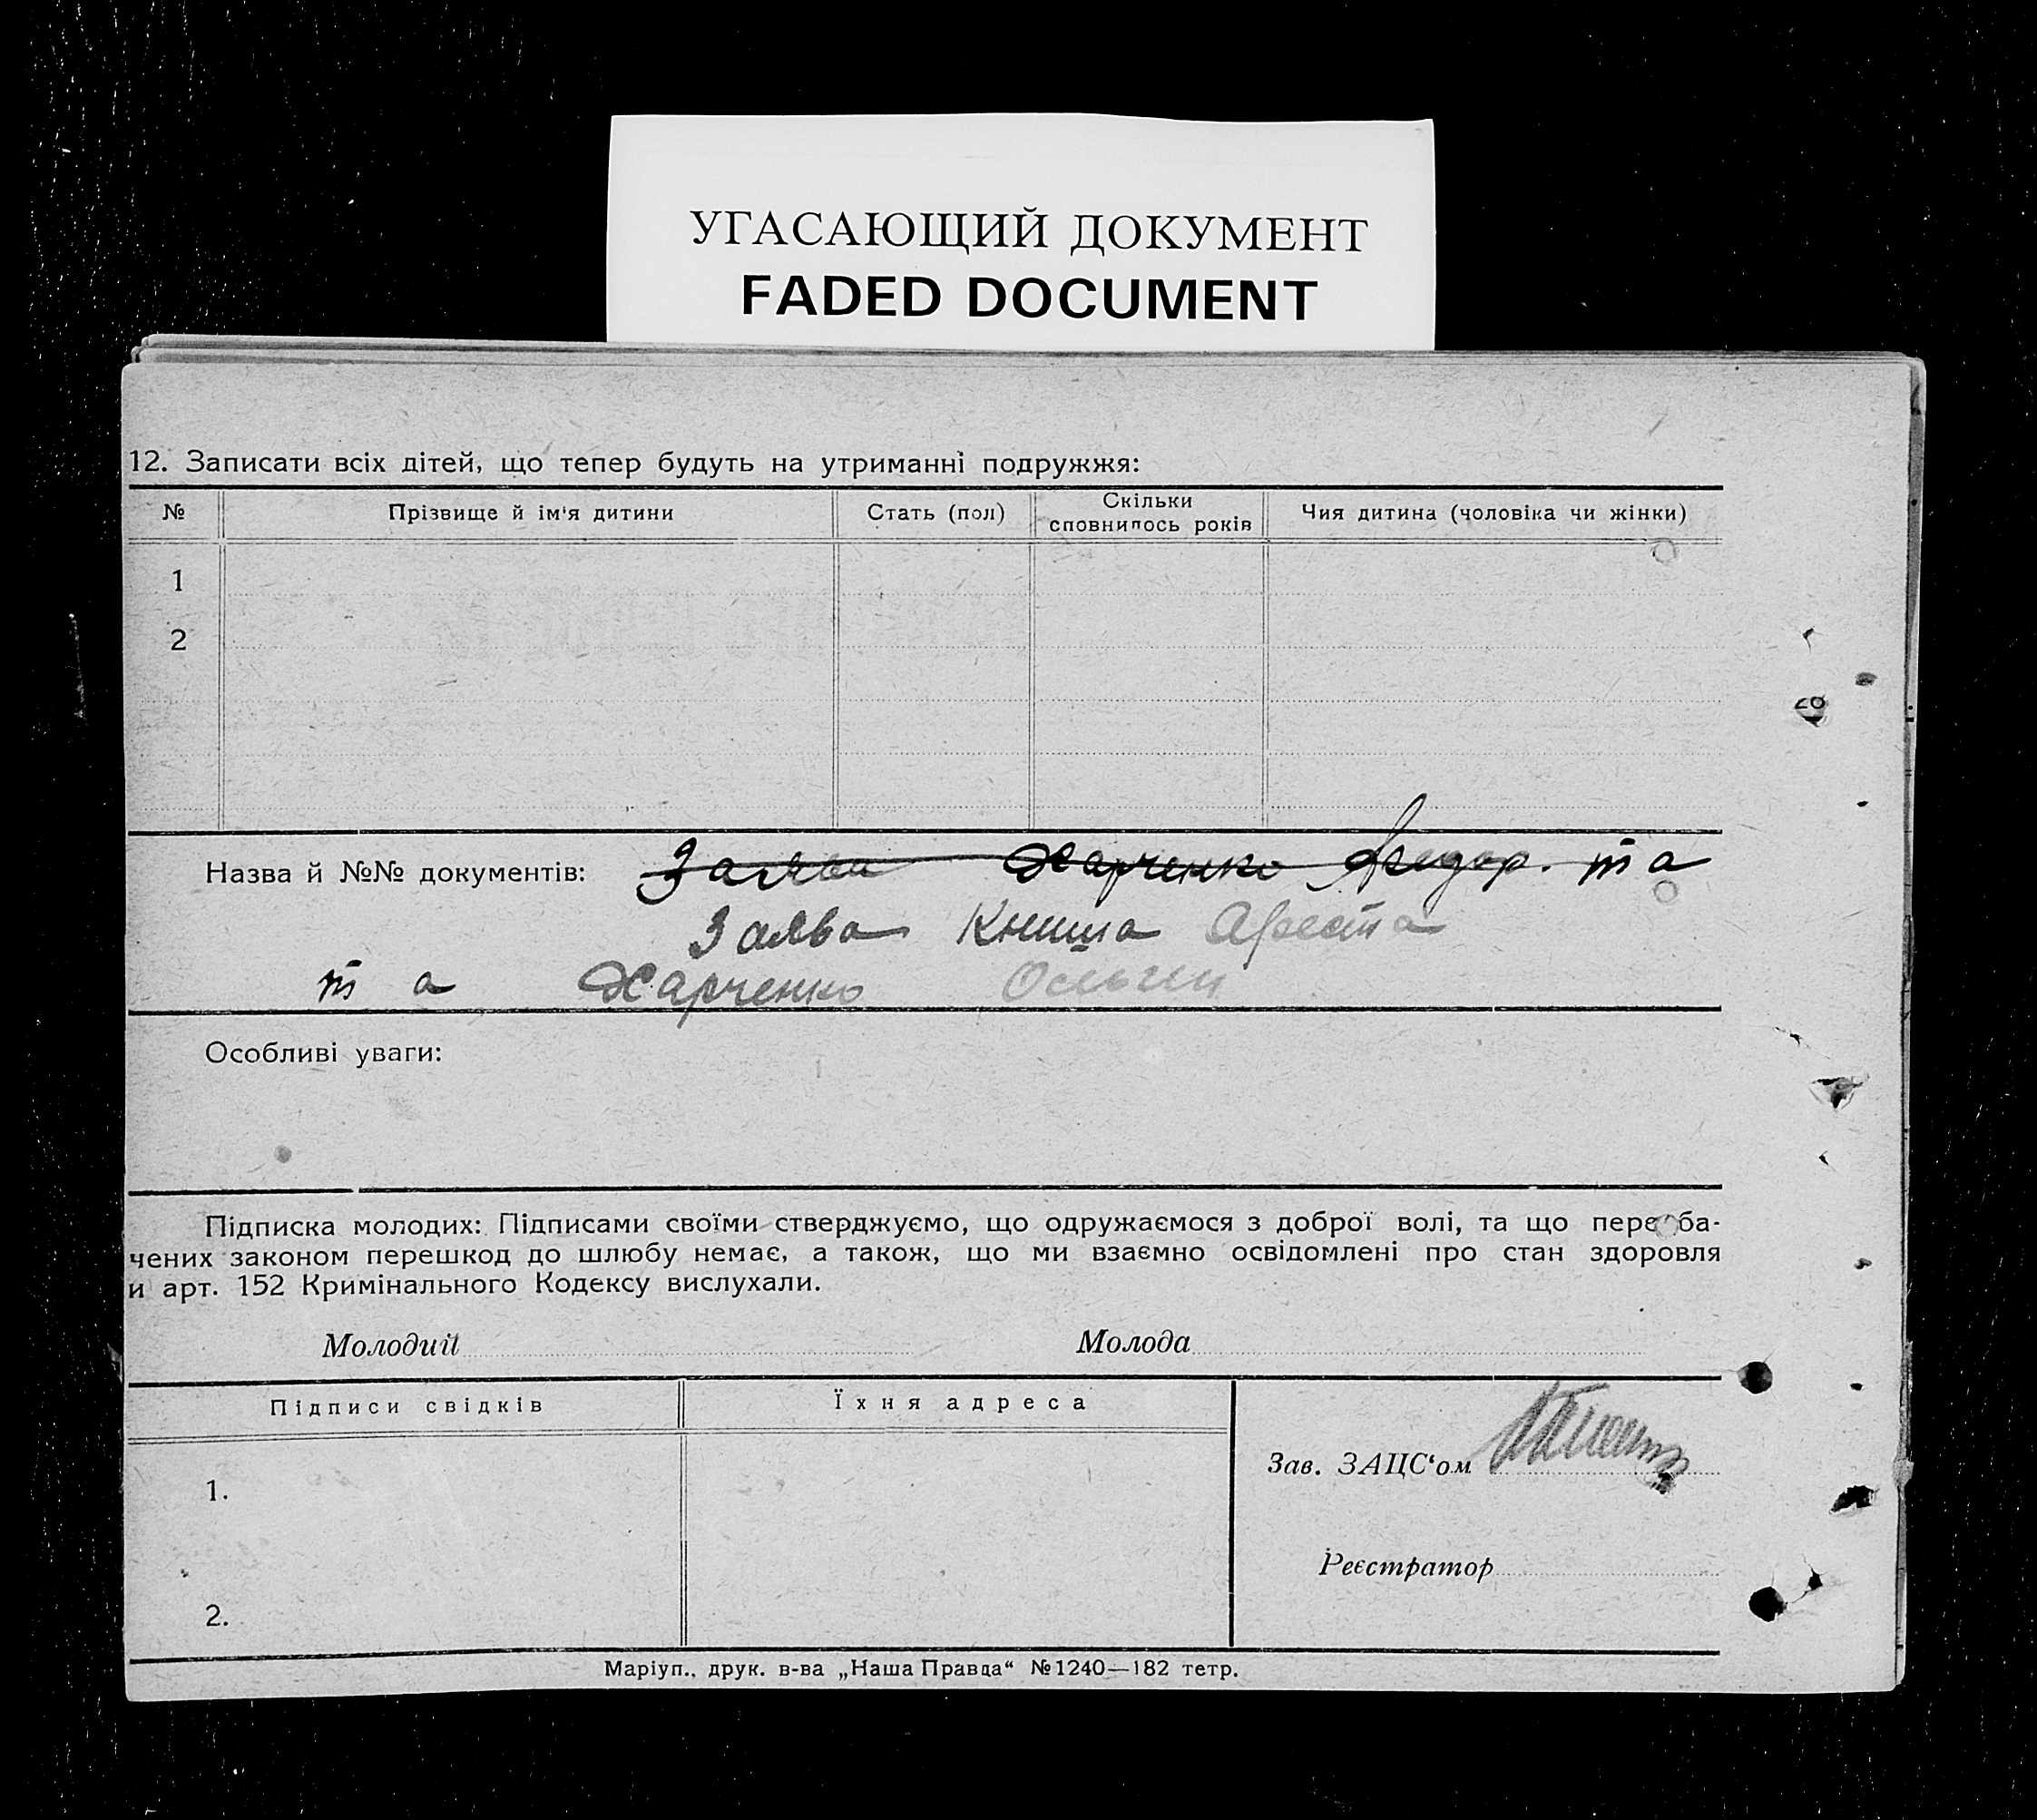 УГАСАЮЩИЙ ДОКУМЕНТ
FADED DOCUMENT
12. Записати всіх дітей, що тепер будуть на утриманні подружжя:
№ Прізвище й ім'я дитини Стать (пол) Скільки сповнилось років Чия дитина (чоловіка чи жінки)
1
2
Назва й №№ документів: Заява Харченко Федор. та
Заява Книша Ареста
та Харченко Ольги
Особливі уваги:
Підписка молодих: Підписами своїми стверджуємо, що одружаємося з доброї волі, та що передба-
чених законом перешкод до шлюбу немає, а також, що ми взаємно освідомлені про стан здоровля
и арт. 152 Кримінального Кодексу вислухали.
Молодий Молода
Підписи свідків Їхня адреса
Зав. ЗАЦС‘ом
1.
Реєстратор
2.
Маріуп., друк. в-ва „Наша Правда“ №1240—182 тетр.